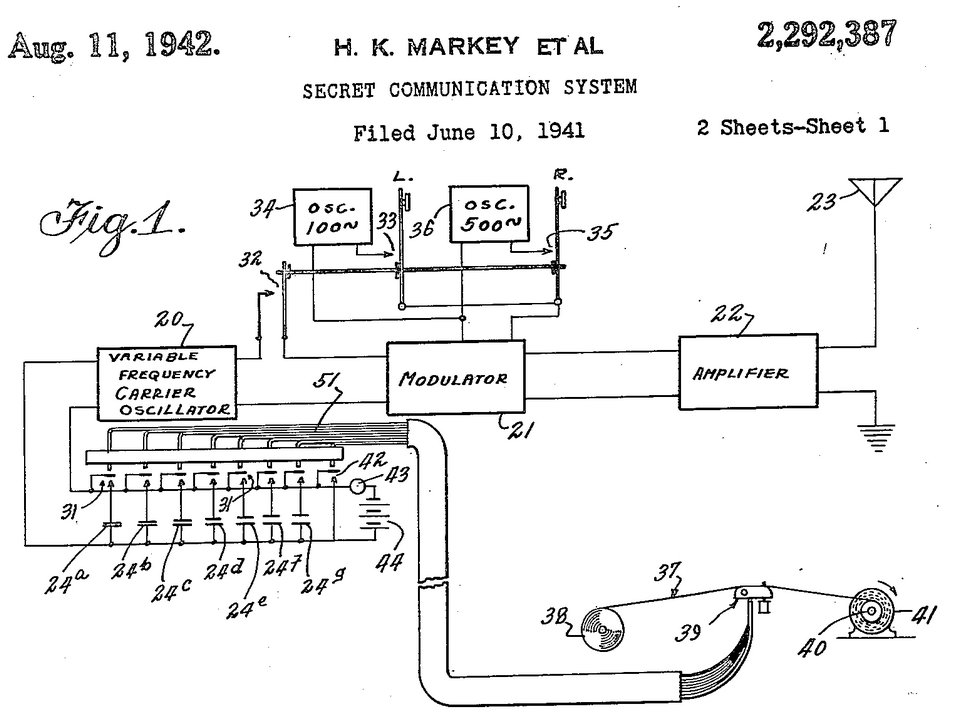 Aug. 11, 1942.
H. K. MARKEY ET AL
2,292,387
SECRET COMMUNICATION SYSTEM
Filed June 10, 1941
2 Sheets-Sheet 1
Fig. 1.
L.
R.
34
OSC.
100~
33
36
OSC.
500~
35
23
32
20
VARIABLE
FREQUENCY
CARRIER
OSCILLATOR
MODULATOR
21
22
AMPLIFIER
51
42
43
31
31
44
24a
24b
24c
24d
24e
24f
24g
37
38
39
40
41